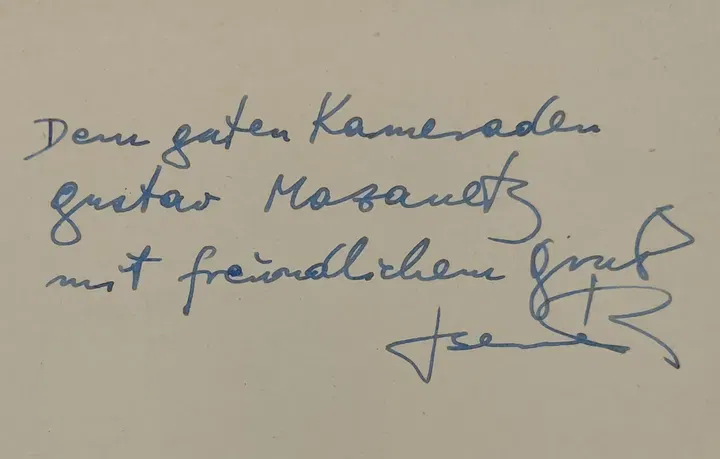 Dem guten Kameraden
gustav Mazanetz
mit freundlichem gruß